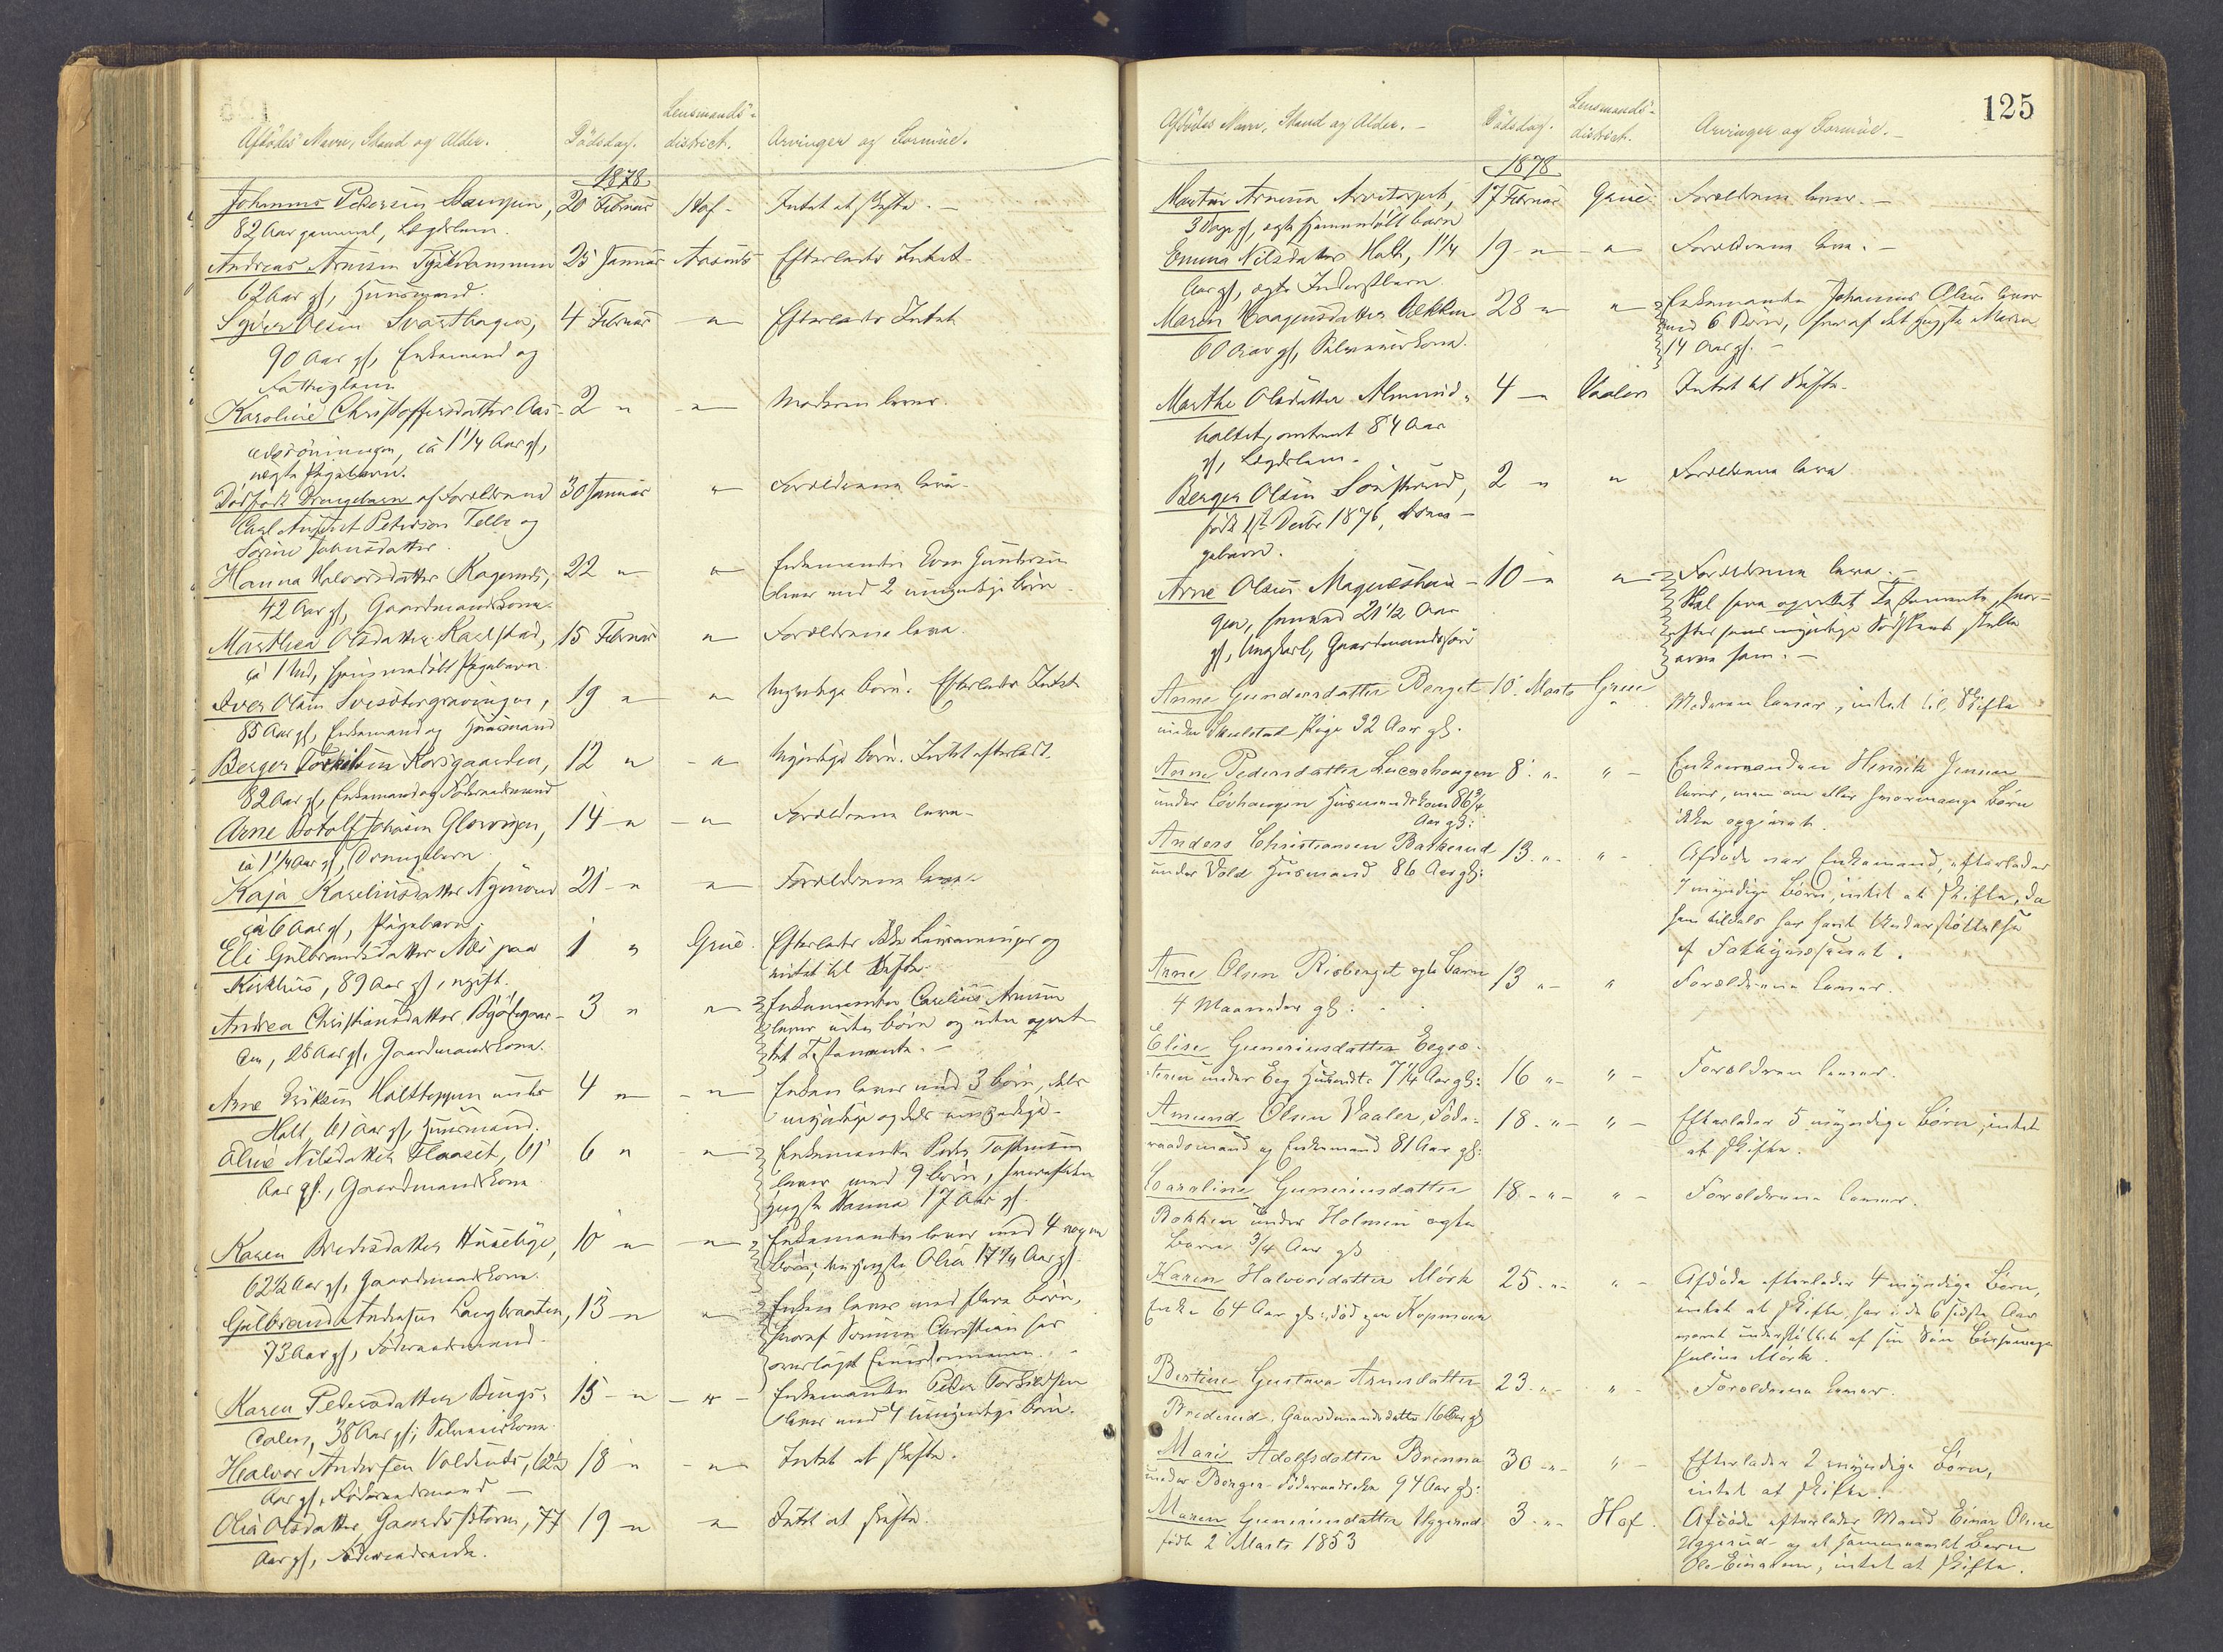 Afdødes Navn, Stand og Alder.
Dødsdag.
Lensmands-
district.
Arvinger og Formue.
1878
Johannes Pedersen
82 Aar gammel, Lægdslem.
20 Februar
Hof
Intet at skifte.
Andreas Arnesen
62 Aar gl, Huusmand.
25 Januar
Aasnes
Efterlader Intet
Syver Olsen Svarthagen,
90 Aar gl, Enkemand og
Fattiglem
4 Februar
"
Efterlader Intet
Karoline Christoffersdatter Aas-
ca 1 1/4 Aar gl,
uægte Pigebarn.
2 "
"
Moderen lever.
Dødfødt Drengebarn af Forældrene
Carl August Peterson Telle og
Johnsdatter.
30 Januar
"
Forældrene leve.
Hanna Halvorsdatter
42 Aar gl, Gaardmandskone.
22 "
"
Enkemanden Gundersen
lever med 2 umyndige Børn
Marthea Olsdatter Karlstad,
ca 1 Md, hjemmedøbt Pigebarn.
15 Februar
"
Forældrene leve.
Iver Olsen
85 Aar gl, Enkemand og Huusmand
19 "
"
Myndige Børn. Efterlader Intet
Berger Korsgaarden,
82 Aar gl, Enkemand og Føderaadsmand
12 "
"
Myndige Børn. Intet efterladt.
Arne Botolf Johnsen
ca 1 1/4 Aar gl, Drengebarn
14 "
"
Forældrene leve.
Kaja Kareliusdatter Nymoen
ca 6 Aar gl, Pigebarn.
21 "
"
Forældrene leve.
Eli Gulbrandsdatter Næs paa
Kirkhus, 89 Aar gl, ugift.
1 "
Grue.
Efterlader ikke Livsarvinger og
intet til Skifte.
Andrea Christiansdatter
den, 28 Aar gl, Gaardmandskone.
3 "
"
Enkemanden Carelius Arnesen
lever uden Børn og uden opret-
tet Testamente.
Arne Eriksen Holttoppen under
Holt, 61 Aar gl, Huusmand.
4 "
"
Enken lever med 3 Børn, dels
myndige og dels umyndige.
Oline Nilsdatter 61
Aar gl., Gaardmandskone
6 "
"
Enkemanden Peder
lever med 9 Børn, hvoraf den
yngste Hanna 17 Aar gl.
Karen
62 1/2 Aar gl, Gaardmandskone.
10 "
"
Enkemanden lever med 4 egne
Børn, den yngste Olea 17 1/4 Aar gl.
Gulbrand Andersen Langbraaten,
73 Aar gl, Føderaadsmand
13 "
"
Enken lever med flere Børn,
hvoraf Sønnen Christian har
overtaget Eiendommen.
Karen Pedersdatter Bings-
dalen, 38 Aar gl, Selveierkone
15 "
"
Enkemanden Peder
lever med 4 umyndige Børn.
Halvor Andersen 62 1/2
Aar gl, Føderaadsmand
18 "
"
Intet at skifte.
Olea Olsdatter 77
Aar gl, Føderaadsenke.
19 "
"
Intet at skifte.
125
Afdødes Navn, Stand og Alder.
Dødsdag.
Lensmands-
district.
Arvinger og Formue.
1878
Arnesen
3 Dage gl, ægte hjemmedøbt Barn
17 Februar
Grue
Forældrene leve.
Emma Nilsdatter Holt, 1 1/4
Aar gl, ægte Inderstbarn
19 "
"
Forældrene leve.
Maren Haagensdatter Bekken
60 Aar gl, Selveierkone.
28 "
"
Enkemanden Johannes Olsen lever
med 6 Børn, hvoraf det yngste Maren
14 Aar gl.
Marthe Olsdatter
holtet, omtrent 84 Aar
gl, Lægdslem.
4 "
Vaaler
Intet til Skifte.
Berger Olsen
født 1876,
2 "
"
Forældrene leve
Arne Olsen
gen, 21 1/2 Aar
gl, Ungkarl, Gaardmandssøn
10 "
"
Forældrene leve.
Skal have oprettet Testamente, hvor-
efter hans myndige Sødskende skulle
arve ham.
Anne Gundersdatter Berget
under Skulstad Pige 32 Aar gl.
10. Marts
Grue
Moderen lever, intet til Skifte
Anne Pedersdatter
under Løvhaugen Huusmandskone 86 3/4
Aar gl:
8. "
"
Enkemanden Henrik Jensen
lever, men om eller hvormange Børn
ikke opgivet.
Anders Christiansen Bakkerud
under Vold Husmand 86 Aar gl:
13. "
"
Afdøde var Enkemand, efterlader
7 myndige Børn, intet at skifte, da
han tildels har havt Understøttelse
af Fattigvæsenet.
Anne Olsen Risberget ægte Barn
4 Maaneder gl:
13 "
"
Forældrene lever.
Elise Guneriusdatter
under Eeg 7 1/4 Aar gl:
16 "
"
Forældren lever.
Amund Olsen Vaaler, Føde-
raadsmand og Enkemand 81 Aar gl:
18. "
"
Efterlader 5 myndige Børn, intet
at skifte.
Caroline Guneriusdatter
Bakken under Holmen ægte
Barn 3/4 Aar gl
18. "
"
Forældrene lever.
Karen Halvorsdatter Mörk
Enke 64 Aar gl: død paa Kopmoen
25. "
"
Afdøde efterlader 4 myndige Børn,
intet at skifte, har i de 6 sidste Aar
været understøttet af sin Søn
Julius Mörk.
Bertine Gustava Arnesdatter
Bredesrud. Gaardmandsdatter 16 Aar gl
23. "
"
Forældrene lever.
Mari Adolfsdatter Brenna
under Berger Føderaadsenke 94 Aar gl:
30 "
"
Efterlader 2 myndige Børn,
intet at skifte.
Maren Guneriusdatter Uggerud
født 2 Marts 1853
3. "
Hof.
Afdøde efterlader Mand Einar Olsen
Uggerud og et Barn
Ole Einarsen, intet at skifte.